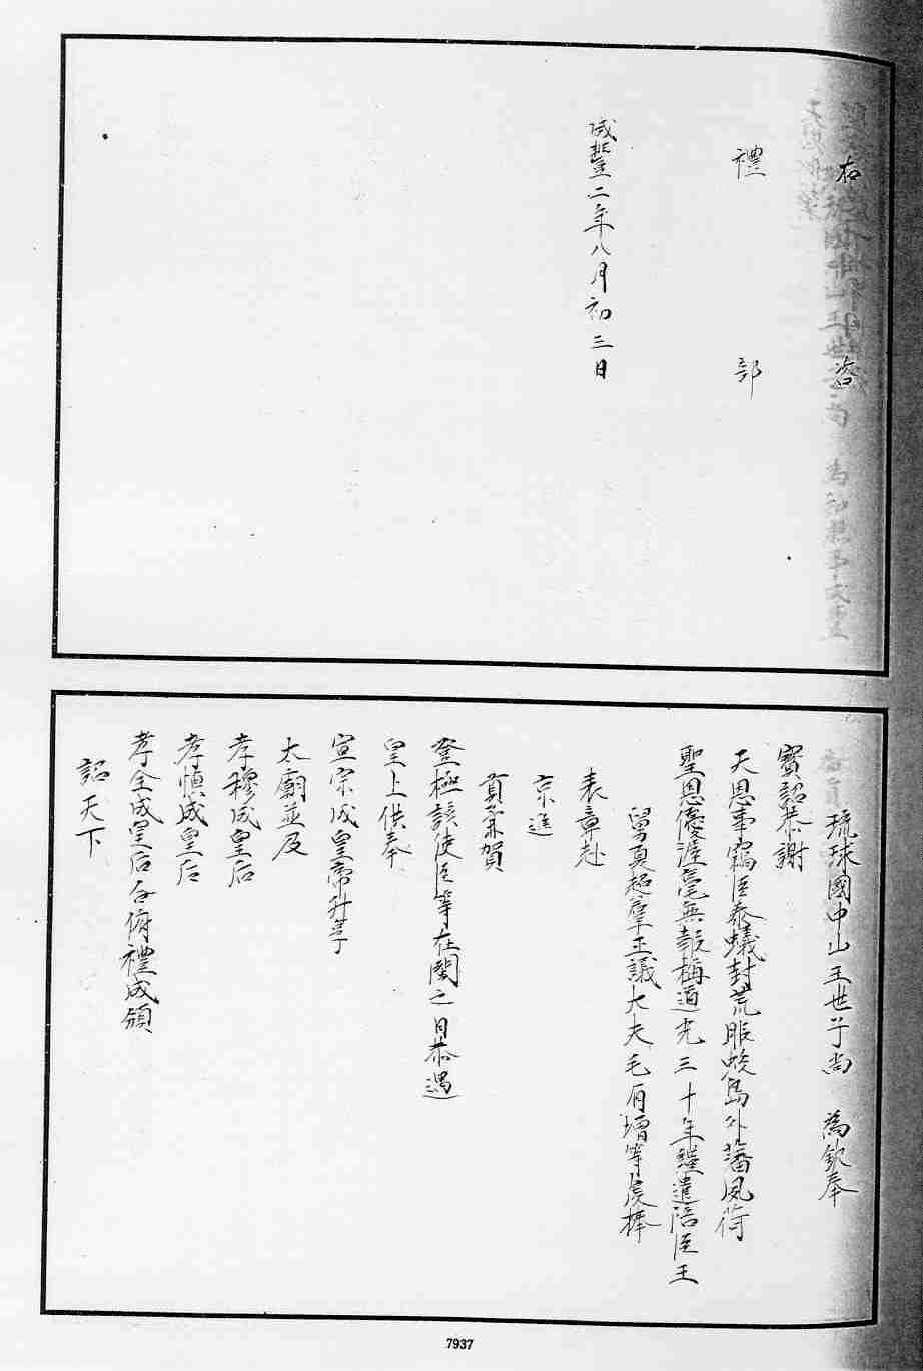 右 咨
禮 部
咸豐二年八月初三日
琉球國中山王世子尚 為欽奉
寶詔恭謝
天恩事竊臣泰蟻封荒服蛟島外藩夙荷
聖恩優渥毫無報稱道光三十年謹遣陪臣王
舅夏超群正議大夫毛有增等虔捧
表章赴
京進
貢慶賀
登極該使臣等在閩之日恭遇
皇上供奉
宣宗成皇帝升祔
太廟並及
孝穆成皇后
孝慎成皇后
孝全成皇后合祔禮成頒
詔天下
7937